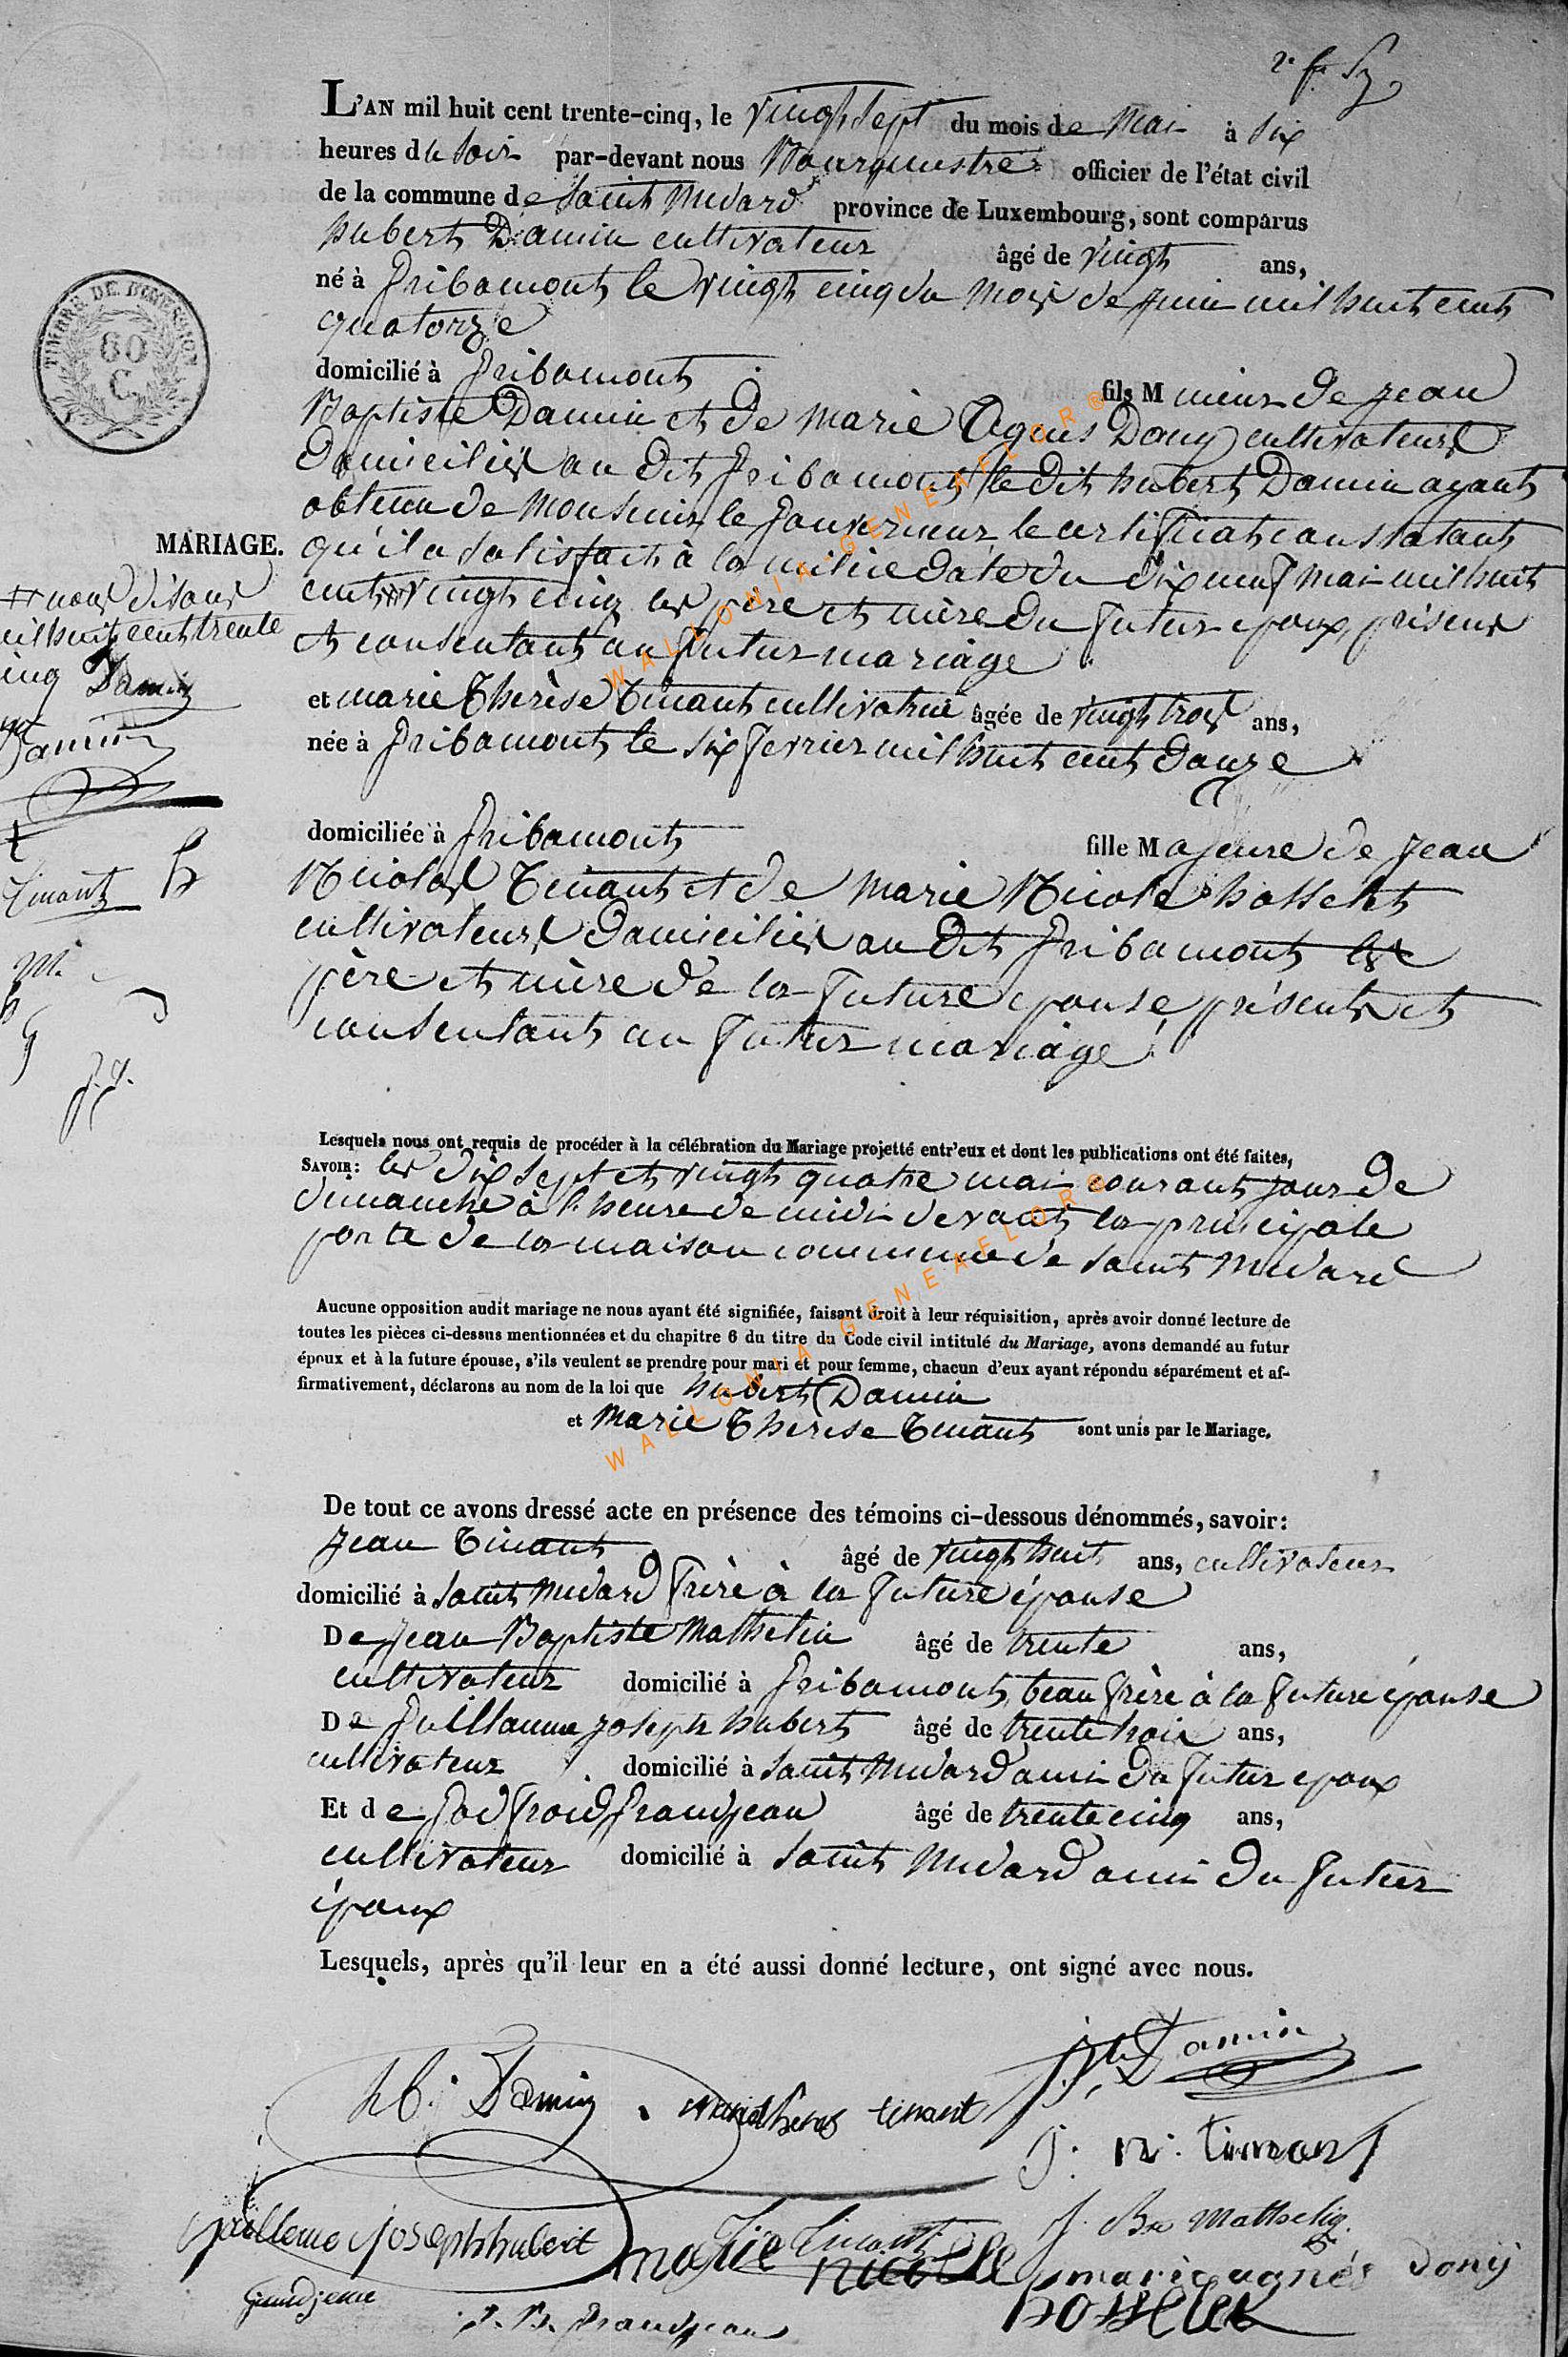 L'AN mil huit cent trente-cinq, le vingt sept du mois de Mai à six
heures du soir par-devant nous Bourguestre officier de l'état civil
de la commune de Saint Medard province de Luxembourg, sont comparus
hubert Damin cultivateur âgé de vingt ans,
né à Gribamont le vingt cinq du mois de juin mil huit cent
quatorze
domicilié à Gribamont fils M ineur de jean
Baptiste Damin et de Marie Agnes Dony cultivateurs
Domiciliés au Dit Gribamont le dit hubert Damin ayant
obtenu de Monsieur le Gouverneur le certificat constatant
MARIAGE.
qu'il a satisfait à la milice daté du dix neuf Mai mil huit
cent vingt cinq les père et mère du futur époux présens
et consentant au futur mariage
# nous disons
mil huit cent trente
cinq Damin
Damin
Tinant
et marie Thérèse Tinant cultivatrice âgée de vingt trois ans,
née à Gribamont le six fevrier mil huit cent Douze
domiciliée à Gribamont fille M ajeure de Jean
Nicolas Tinant et de Marie Nicole hosselet
cultivateurs Domiciliés au Dit Gribamont les
père et mère de la future epouse présents et
consentants au futur mariage
TIMBRE DE DIMENSION
60
C.
Lesquels nous ont requis de procéder à la célébration du Mariage projetté entr'eux et dont les publications ont été faites,
SAVOIR: les dix sept et vingt quatre mai courant jour de
dimanche à l'heure de midi devant la principale
porte de la maison commune de Saint Medard
Aucune opposition audit mariage ne nous ayant été signifiée, faisant droit à leur réquisition, après avoir donné lecture de
toutes les pièces ci-dessus mentionnées et du chapitre 6 du titre du Code civil intitulé du Mariage, avons demandé au futur
époux et à la future épouse, s'ils veulent se prendre pour mari et pour femme, chacun d'eux ayant répondu séparément et af-
firmativement, déclarons au nom de la loi que hubert Damin
et Marie Thérèse Tinant sont unis par le Mariage.
De tout ce avons dressé acte en présence des témoins ci-dessous dénommés, savoir:
Jean Tinant âgé de vingt huit ans, cultivateur
domicilié à Saint Medard frère à la future épouse
De Jean Baptiste Mathelin âgé de trente ans,
cultivateur domicilié à Gribamont beau frère à la future épouse
De Guillaume joseph hubert âgé de trente trois ans,
cultivateur domicilié à Saint Medard ami du futur epoux
Et de Godfroid Grandjean âgé de trente cinq ans,
cultivateur domicilié à Saint Medard ami du futur
époux
Lesquels, après qu'il leur en a été aussi donné lecture, ont signé avec nous.
hb. Damin marie theres tinant J.B. Damin
J. N. tinant
guilleme joseph hubert J. Bte Mathelin
Tinant
marie nicolle hosselet
marie agnés Dony
Grandjean
J. B. Grandjean
WALLONIA-GENEAFLOR®
WALLONIA-GENEAFLOR®